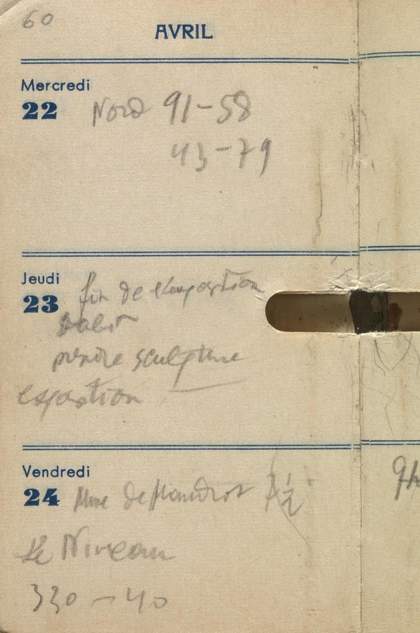 60
AVRIL
Mercredi
22 Nord 91-58
43-79
Jeudi
23 fin de l'exposition
prendre sculpture
exposition
Vendredi
24 Mme de Mandrot
330-40